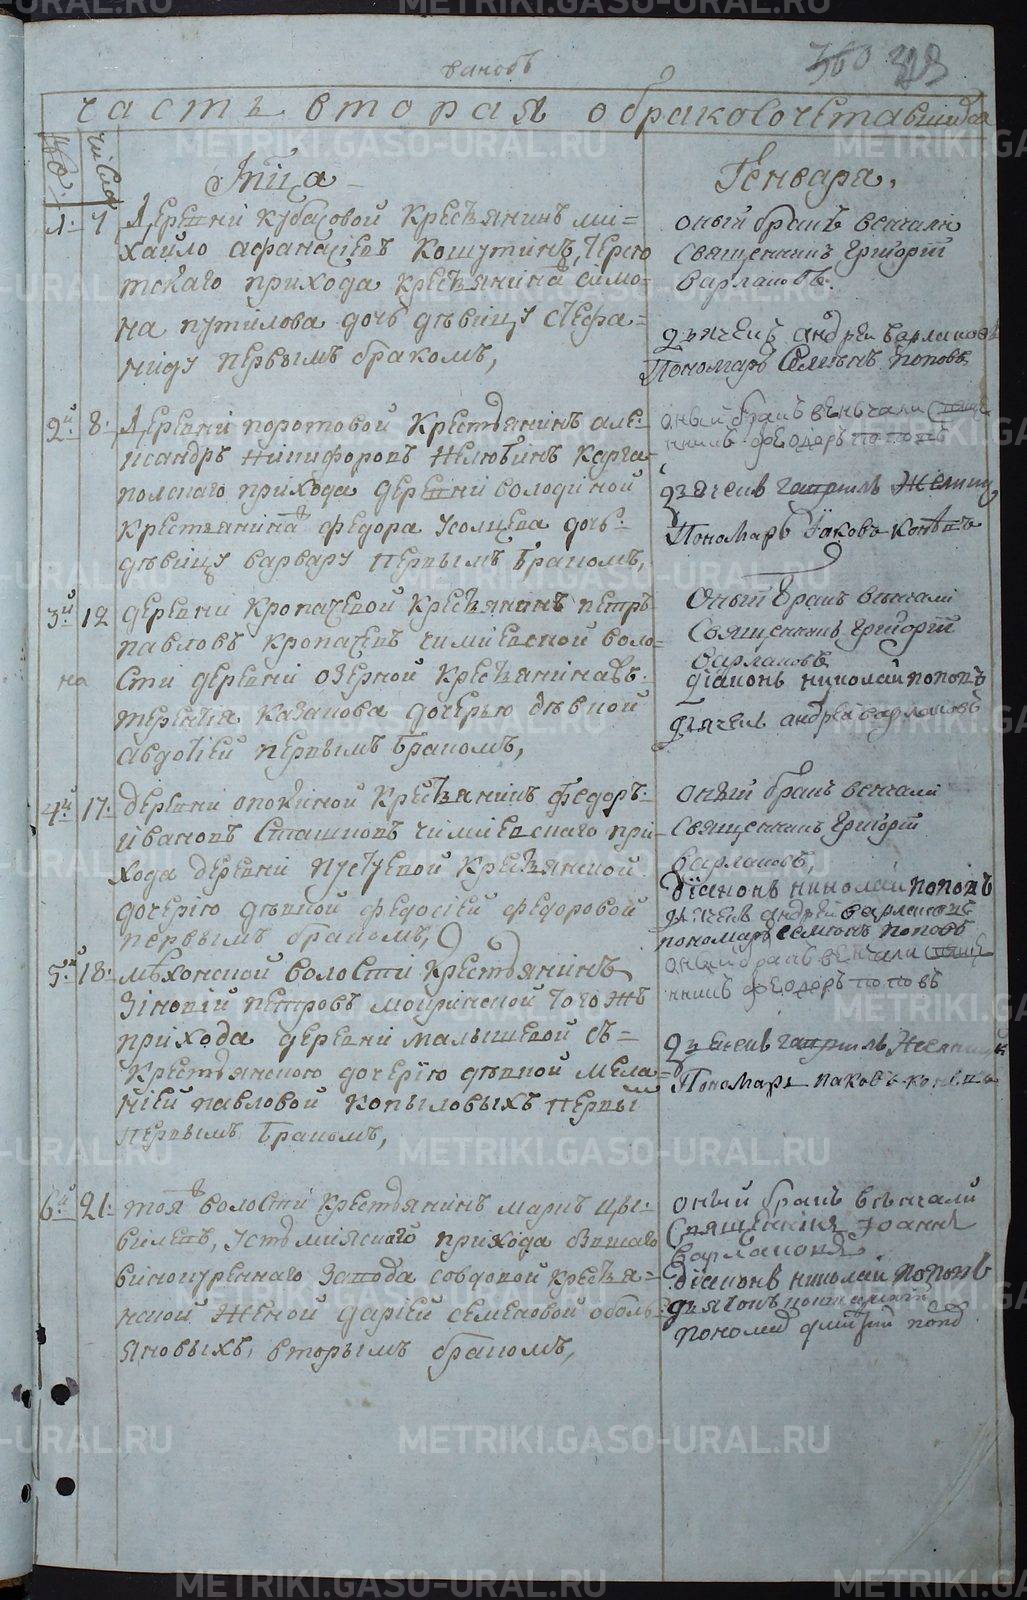 вановъ
360
часть вторая о бракосочетавшихся
№
числа
Лица
Генваря.
1: 7 Деревни кубасовой крестьянинъ ми=
хайло афанасьевъ Кошутинъ,
тскаго прихода крестьянина симо=
на путилова дочь девицу стефа=
ниду первымъ бракомъ,
оный бракъ венчали
священникъ григорій
варлаковъ.
дьячекъ андреи варлаковъ
Пономарь Семенъ поповъ
2й 8: Деревни поротовой крестьянинъ але=
ксандръ никифоровъ нелюбинъ карга=
польскаго прихода деревни володиной
крестьянина федора усольцева дочь
дѣвицу варвару первымъ бракомъ,
оный бракъ вѣнчали свяще
нникъ феодоръ поповъ
дьячекъ гавриилъ
Пономарь Іаковъ коневъ
3й 12 деревни кропачевой крестьянинъ петръ
павловъ кропачевъ чимеевской воло=
на
сти деревни озерной крестьянина
терентья казакова дочерью дѣвкой
авдотьей первымъ бракомъ,
Оный бракъ вѣнчали
священникъ григорій
варлаковъ
діаконъ николай поповъ
дьячекъ андрей варлаковъ
4й 17: деревни опокиной крестьянинъ федоръ
ивановъ сташковъ чимеевскаго при=
хода деревни пустуевой крестьянской
дочерію дѣвкой федосіей федоровой
первымъ бракомъ,
оный бракъ венчали
священникъ григорій
варлаковъ,
діаконъ николай поповъ
дьячекъ андрей варлаковъ
пономарь семенъ поповъ
5й 18: мѣхонской волости крестьянинъ
зіновій петровъ мокринской того жъ
прихода деревни малышевой съ=
крестьянскою дочерію дѣвкой мела=
ніей павловой копыловыхъ первы
первымъ бракомъ,
оный бракъ вѣнчали свяще
нникъ феодоръ поповъ
дьячекъ гавриилъ
Пономарь іаковъ коневъ
6й 21: тоя волости крестьянинъ маркъ
прихода
винокуреннаго завода совдовой крестья=
нской женой дарьей семеновой оболь=
яновыхъ, вторымъ бракомъ,
оный бракъ вѣнчали
Священникъ Іоаннъ
варлаковъ
діаконъ николай поповъ
поповъ